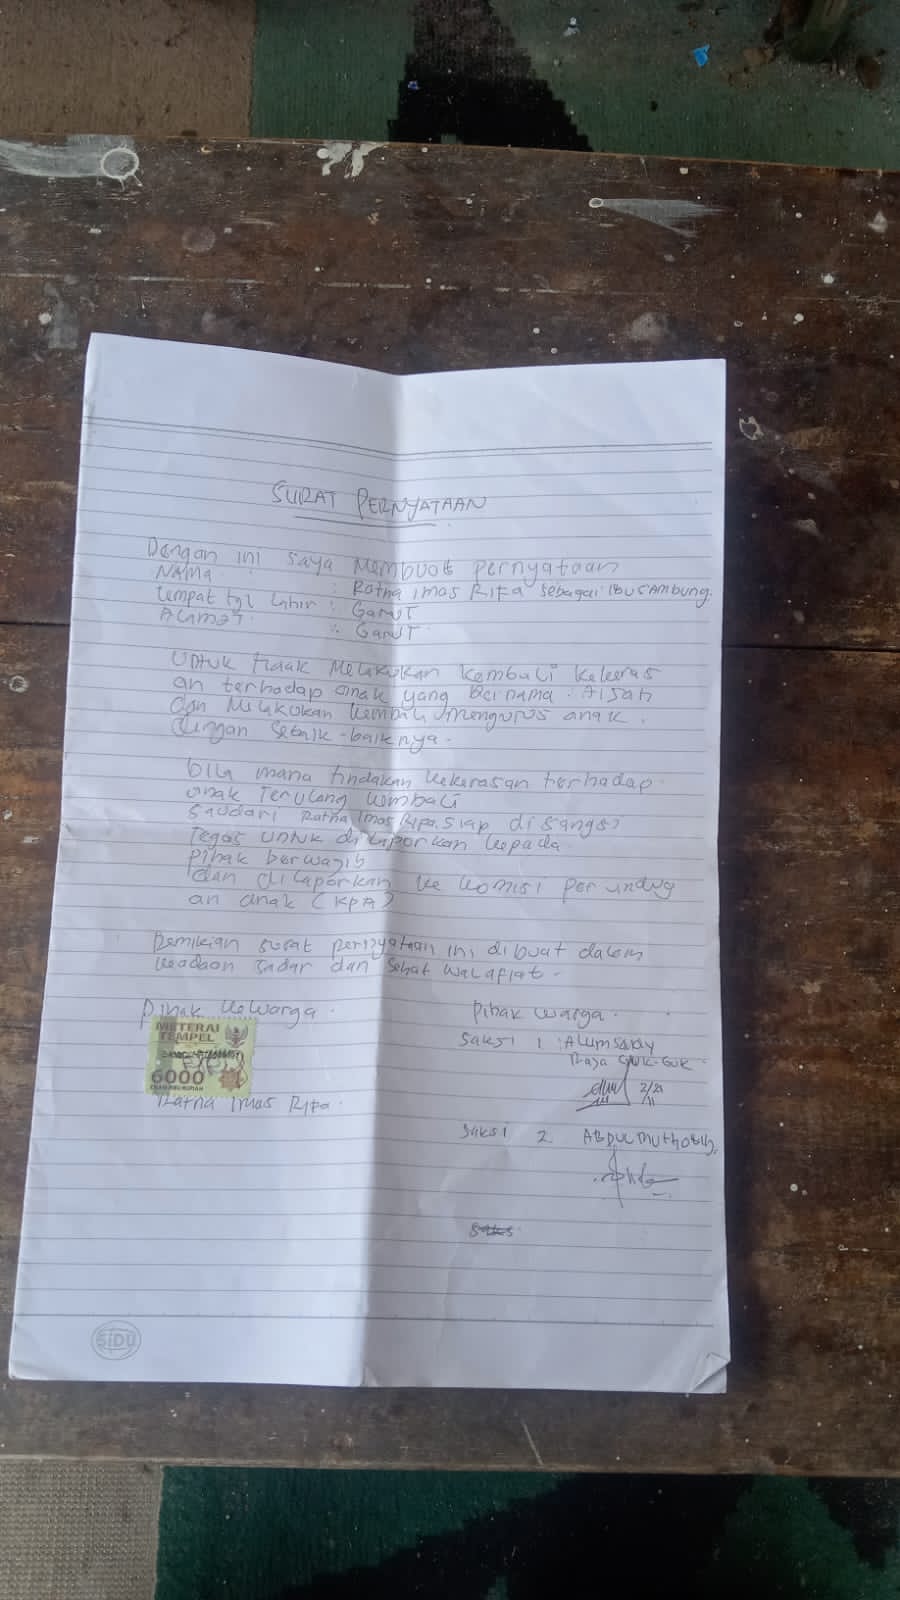 SURAT PERNYATAAN
Dengan ini saya membuat pernyataan
NAMA : Ratna imas RIFa sebagai IBU SAMBUNG.
Tempat tgl Lahir : GARUT
ALAMAT : GARUT
Untuk tidak Melakukan kembali kekeras
an terhadap anak yang bernama : AISAH
dan Melakukan kembali mengurus anak.
dengan sebaik-baiknya.
bila mana tindakan kekerasan terhadap
anak Terulang kembali
saudari Ratna imas Ripa. siap disangsi
Tegas untuk dilaporkan kepada
pihak berwajib
dan dilaporkan ke komisi perlindung
an anak (KPA)
Demikian surat pernyataan ini dibuat dalam
keadaan sadar dan sehat walafiat.
pihak keluarga.
pihak warga.
METERAI
TEMPEL
6000
ENAM RIBU RUPIAH
Ratna imas RIFa.
saksi 1 : Alumsady
Raja GUK-GUK
2/21
11
saksi 2 ABDUL Muthobib.
SiDU